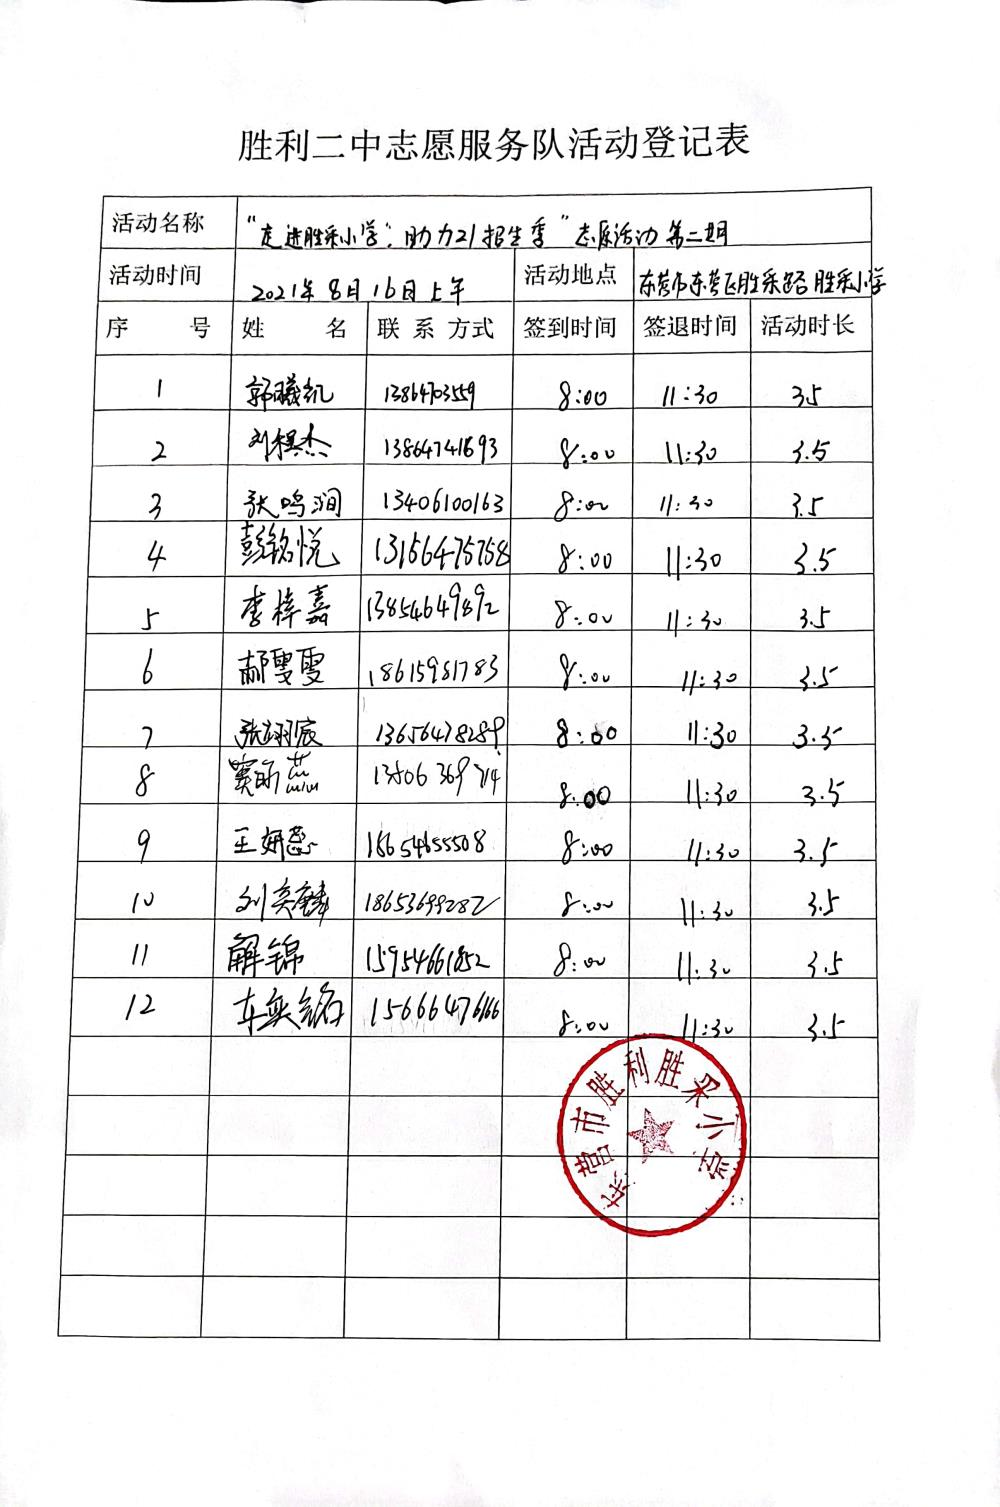 胜利二中志愿服务队活动登记表
活动名称 "走进胜采小学,助力21招生季"志愿活动 第二期
活动时间 2021年8月16日上午 活动地点 东营市东营区胜采路胜采小学
序 号 姓 名 联系方式 签到时间 签退时间 活动时长
1 郭曦凯 13864703559 8:00 11:30 3.5
2 刘祺杰 13864741693 8:00 11:30 3.5
3 张鸣润 13406100163 8:00 11:30 3.5
4 彭铭悦 13156475758 8:00 11:30 3.5
5 李梓嘉 13854649892 8:00 11:30 3.5
6 郝雯雯 18615981783 8:00 11:30 3.5
7 张翊宸 13656478289 8:00 11:30 3.5
8 8:00 11:30 3.5
9 王妍蕊 18654655508 8:00 11:30 3.5
10 刘奕麟 18653699282 8:00 11:30 3.5
11 解锦 15954661852 8:00 11:30 3.5
12 车奕铭 15666476166 8:00 11:30 3.5
东营市胜利胜采小学